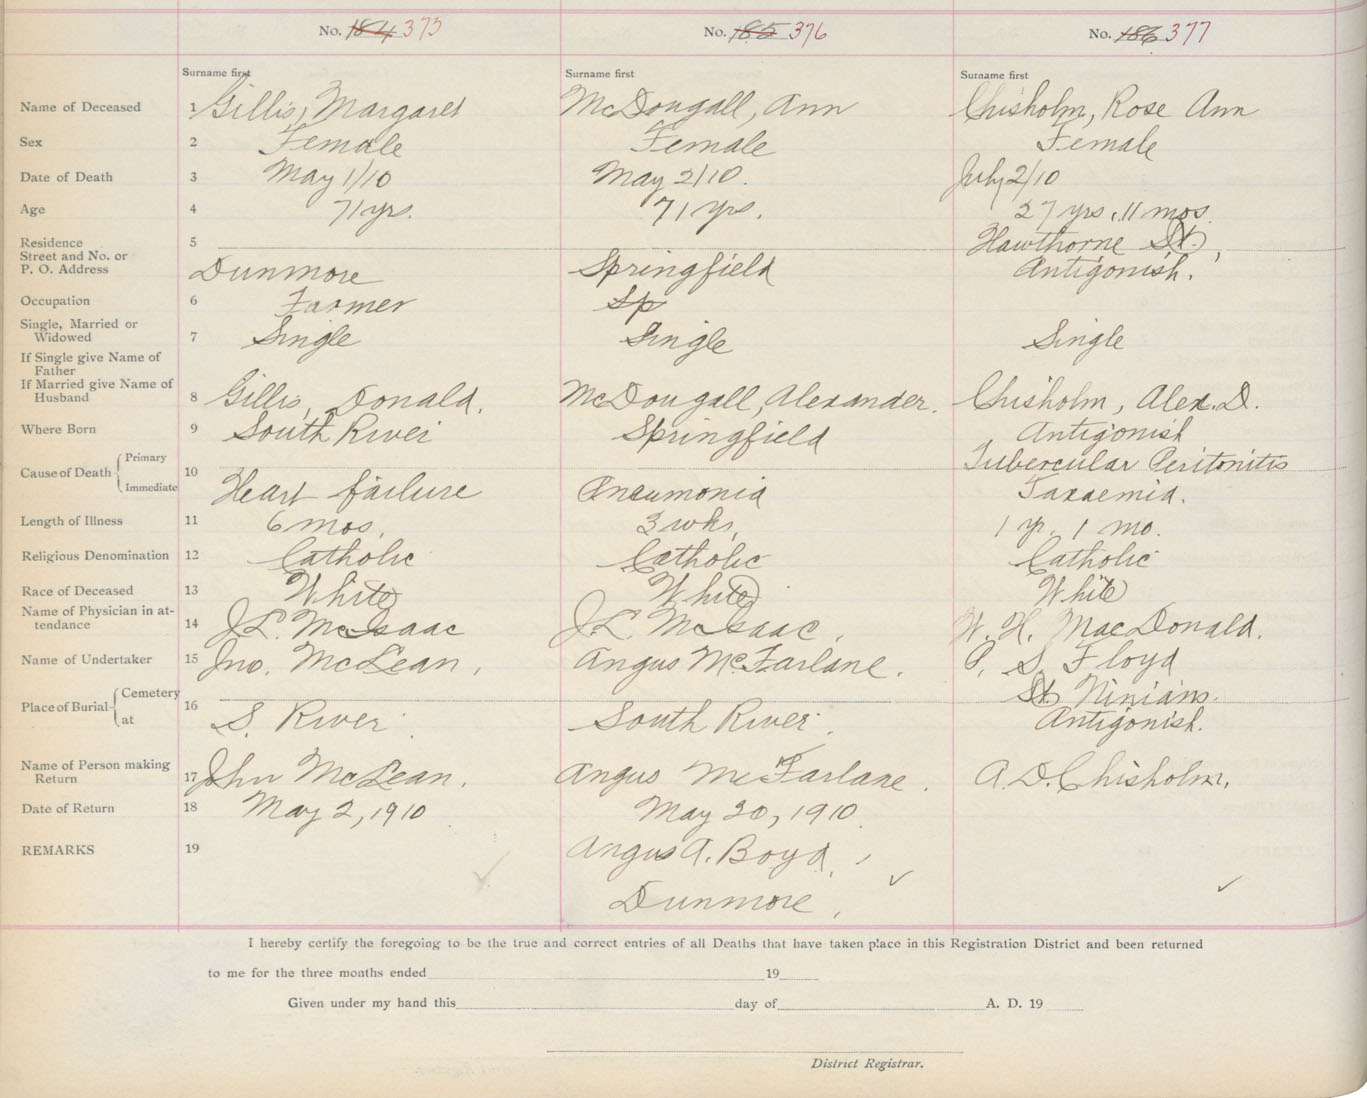 No. 184 375 No. 185 376 No. 186 377
Surname first Surname first Surname first
Name of Deceased 1 Gillis, Margaret McDougall, Ann Chisholm, Rose Ann
Sex 2 Female Female Female
Date of Death 3 May 1/10 May 2/10. July 2/10
Age 4 71 yrs. 71 yrs. 27 yrs. 11 mos.
Residence 5 Hawthorne St.,
Street and No. or
P. O. Address Dunmore Springfield Antigonish.
Occupation 6 Farmer Sp
Single, Married or
Widowed 7 Single Single Single
If Single give Name of
Father
If Married give Name of
Husband 8 Gillis, Donald. McDougall, Alexander. Chisholm, Alex. D.
Where Born 9 South River Springfield Antigonish
Cause of Death Primary 10 Tubercular Peritonitis
Immediate Heart failure Pneumonia Toxaemia.
Length of Illness 11 6 mos. 3 wks. 1 yr. 1 mo.
Religious Denomination 12 Catholic Catholic Catholic
Race of Deceased 13 White White White
Name of Physician in at-
tendance 14 J.L. McIsaac J.L. McIsaac, W. H. MacDonald.
Name of Undertaker 15 Jno. McLean, Angus McFarlane. P. S. Floyd
Place of Burial Cemetery 16 St. Ninians.
at S. River South River. Antigonish.
Name of Person making
Return 17 John McLean. Angus McFarlane. A. D. Chisholm.
Date of Return 18 May 2, 1910 May 20, 1910
REMARKS 19 Angus A. Boyd,
Dunmore,
I hereby certify the foregoing to be the true and correct entries of all Deaths that have taken place in this Registration District and been returned
to me for the three months ended 19
Given under my hand this day of A. D. 19
District Registrar.